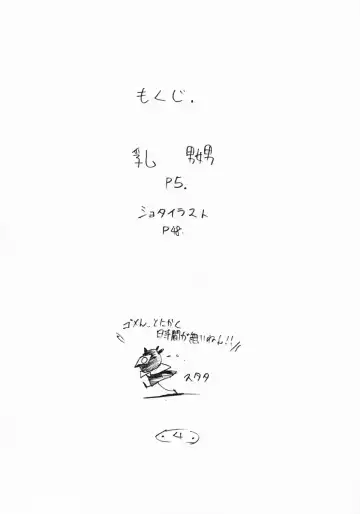 もくじ.
乳 嬲
P5.
ショタイラスト
P48.
ゴメん、とにかく
時間が無いねん!!
スタタ
4